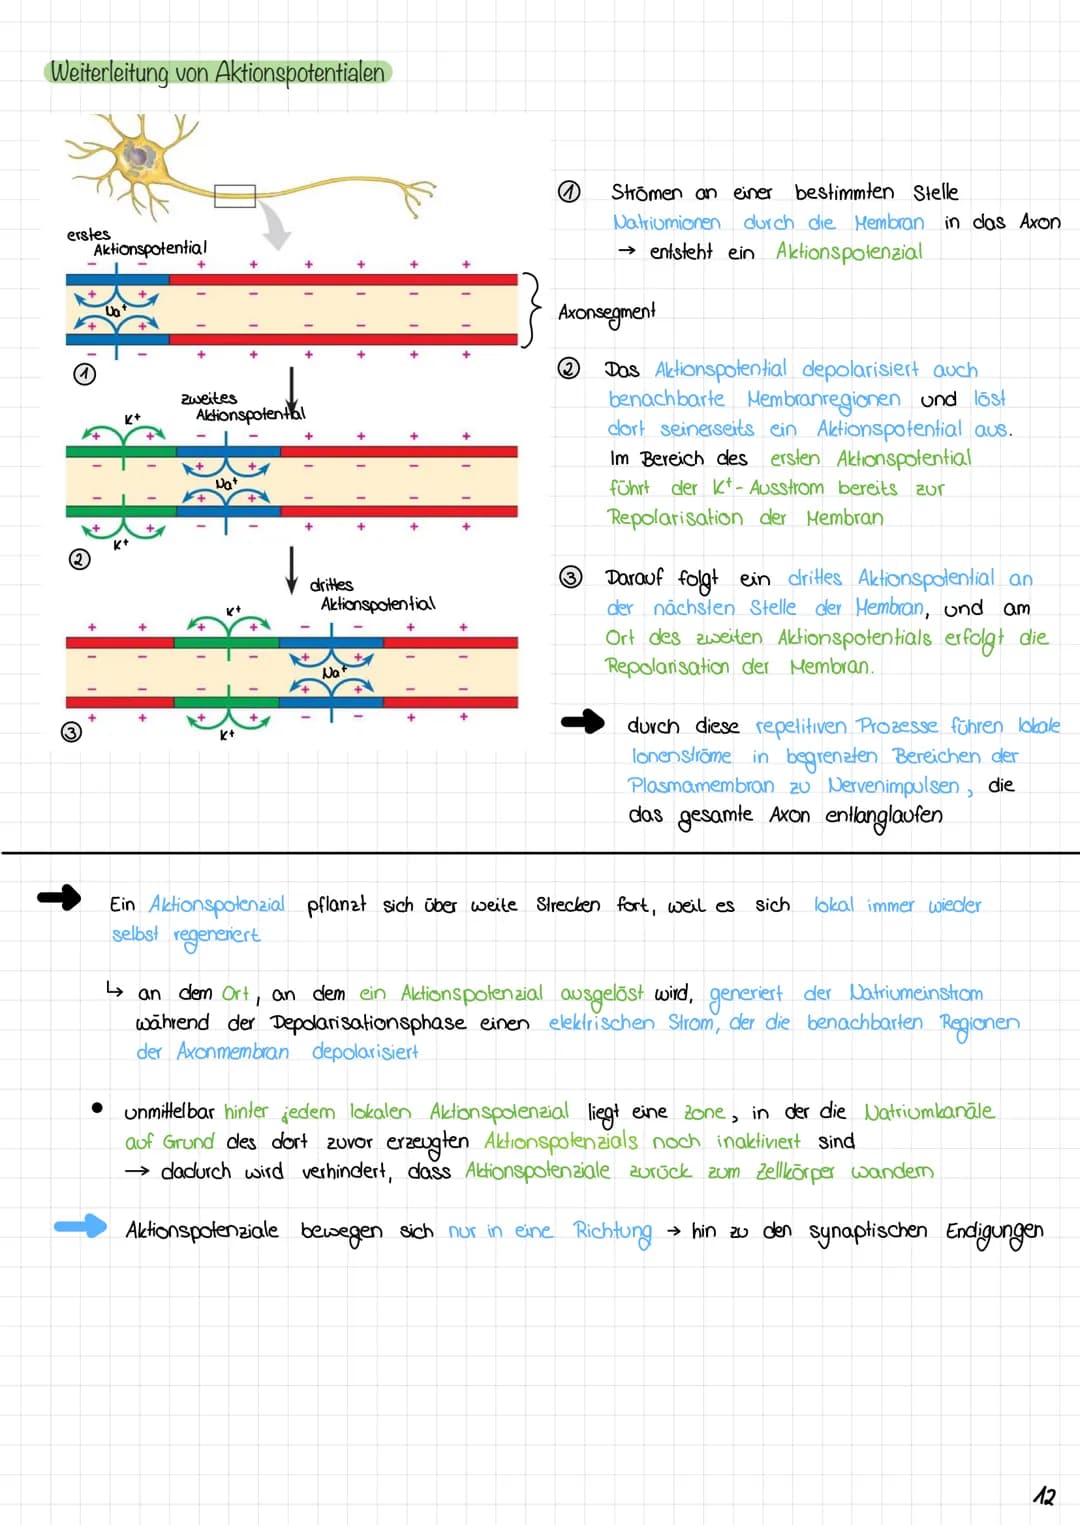 Weiterleitung von Aktionspotentialen
erstes
Aktionspotential
Na⁺
①
zweites
Aktionspotential
K+
Na⁺
K+
②
drittes
Aktionspotential
K+
Na⁺
K+
③
① Strömen an einer bestimmten Stelle
Natriumionen durch die Membran in das Axon
→ entsteht ein Aktionspotenzial
Axonsegment
② Das Aktionspotential depolarisiert auch
benachbarte Membranregionen und löst
dort seinerseits ein Aktionspotential aus.
Im Bereich des ersten Aktionspotential
führt der K⁺-Ausstrom bereits zur
Repolarisation der Membran
③ Darauf folgt ein drittes Aktionspotential an
der nächsten Stelle der Membran, und am
Ort des zweiten Aktionspotentials erfolgt die
Repolarisation der Membran.
durch diese repetitiven Prozesse führen lokale
Ionenströme in begrenzten Bereichen der
Plasmamembran zu Nervenimpulsen, die
das gesamte Axon entlanglaufen
Ein Aktionspotenzial pflanzt sich über weite Strecken fort, weil es sich lokal immer wieder
selbst regeneriert
↳ an dem Ort, an dem ein Aktionspotenzial ausgelöst wird, generiert der Natriumeinstrom
während der Depolarisationsphase einen elektrischen Strom, der die benachbarten Regionen
der Axonmembran depolarisiert
• unmittelbar hinter jedem lokalen Aktionspotenzial liegt eine Zone, in der die Natriumkanäle
auf Grund des dort zuvor erzeugten Aktionspotenzials noch inaktiviert sind
→ dadurch wird verhindert, dass Aktionspotenziale zurück zum Zellkörper wandern
Aktionspotenziale bewegen sich nur in eine Richtung → hin zu den synaptischen Endigungen
12